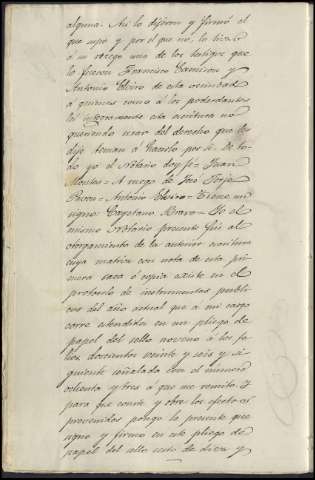 alguna. Así lo dijeron y firmó el
que supo y por el que no, lo hizo
á su ruego uno de los testigos que
lo fueron Francisco Camiron y
Antonio Elviro de esta vecindad
á quienes como á los poderdantes
leí integramente esta escritura no
queriendo usar del derecho que les
dije tenian á hacerlo por si. De to-
do yo el Notario doy fe = Juan
Montes = A ruego de José Torja
Pavon = Antonio Elviro = Tiene un
signo: Cayetano Bravo = Yo el
mismo Notario presente fuí al
otorgamiento de la anterior escritura
cuya matriz con nota de esta pri-
mera saca ó copia existe en el
protocolo de instrumentos publi-
cos del año actual que á mi cargo
corre estendida en un pliego de
papel del sello noveno á los fo-
lios doscientos veinte y seis y si-
guiente señalada con el numero
ochenta y tres á que me remito. Y
para que conste y obre los efectos
prevenidos pongo la presente que
signo y firmo en este pliego de
papel del sello de diez y